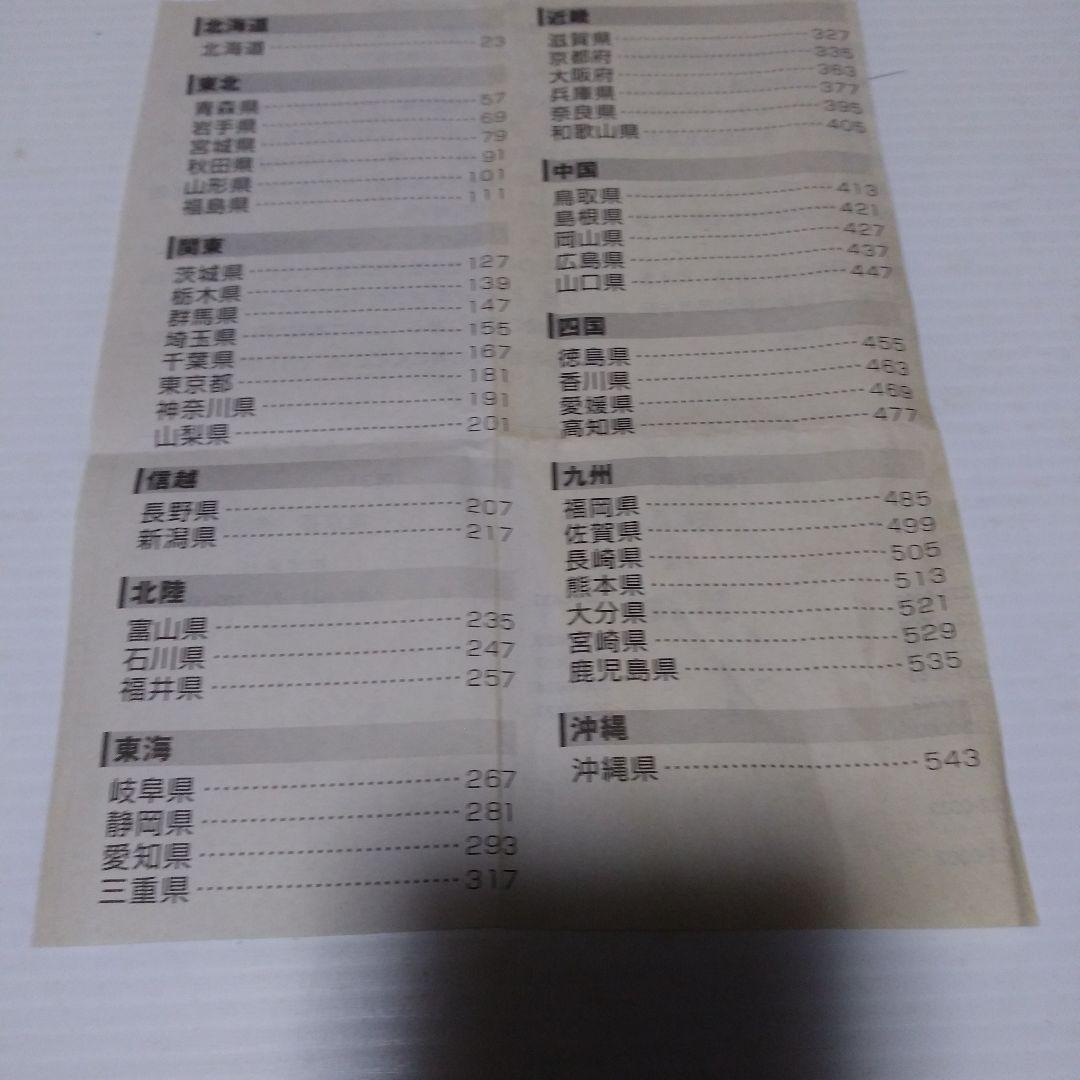 北海道
北海道 23
東北
青森県 57
岩手県 69
宮城県 79
秋田県 91
山形県 101
福島県 111
関東
茨城県 127
栃木県 139
群馬県 147
埼玉県 155
千葉県 167
東京都 181
神奈川県 191
山梨県 201
信越
長野県 207
新潟県 217
北陸
富山県 235
石川県 247
福井県 257
東海
岐阜県 267
静岡県 281
愛知県 293
三重県 317
近畿
滋賀県 327
京都府 335
大阪府 363
兵庫県 377
奈良県 395
和歌山県 405
中国
鳥取県 413
島根県 421
岡山県 427
広島県 437
山口県 447
四国
徳島県 455
香川県 463
愛媛県 469
高知県 477
九州
福岡県 485
佐賀県 499
長崎県 505
熊本県 513
大分県 521
宮崎県 529
鹿児島県 535
沖縄
沖縄県 543